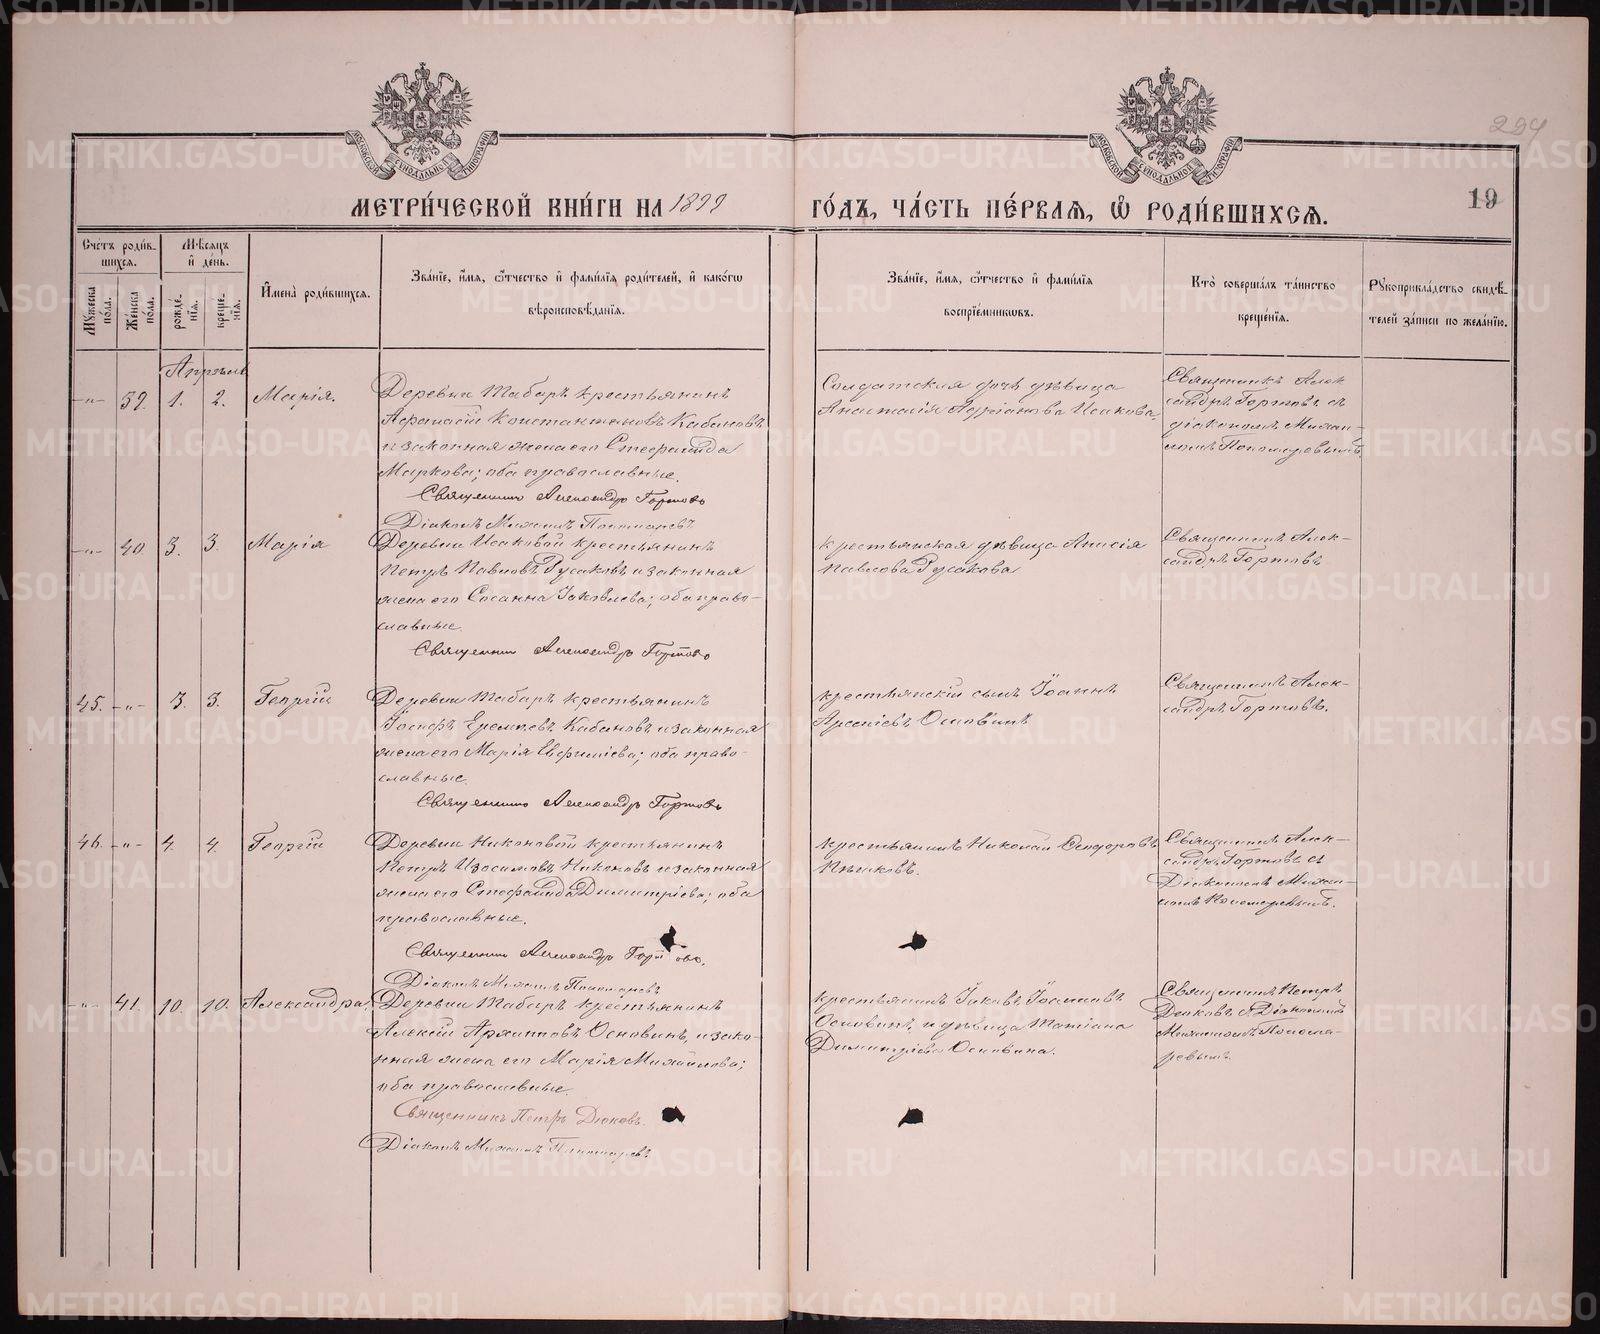 294
19
МОСКОВСКОЙ СѴНОДАЛЬНОЙ ТИПОГРАФІИ
МОСКОВСКОЙ СѴНОДАЛЬНОЙ ТИПОГРАФІИ
МЕТРИ́ЧЕСКОЙ КНИ́ГИ НА 1899
ГО́ДЪ, ЧА́СТЬ ПЕ́РВАѦ, Ѡ РОДИ́ВШИХСѦ.
Сче́тъ роди́в-
шихсѧ.
Мѣ́сѧцъ
и҆ де́нь.
Мꙋ́жеска по́ла.
Же́нска по́ла.
рожде́-нїѧ.
креще́-нїѧ.
И҆мена̀ роди́вшихсѧ.
Зва́нїе, и҆́мѧ, ѻ҆́тчество и҆ фами́лїѧ роди́телей, и҆ како́гѡ
вѣроисповѣ́данїѧ.
Зва́нїе, и҆́мѧ, ѻ҆́тчество и҆ фами́лїѧ
воспрїе́мникѡвъ.
Кто̀ соверша́лъ та́инство
креще́нїѧ.
Рꙋкоприкла́дство свидѣ́-
телей за́писи по жела́нїю.
Апрѣль
-"- 39. 1. 2. Марія.
Деревни Табаръ крестьянинъ
Афанасій Константиновъ Кабановъ
и законная жена его Стефанида
Маркова; оба православные.
Священникъ Александръ Гортовъ
Діаконъ Михаилъ Пономаревъ
Солдатская дочь дѣвица
Анастасія Адріанова Исакова
Священникъ Алек
сандръ Гортовъ съ
діакономъ Михаи-
ломъ Пономаревымъ
-"- 40. 3. 3. Марія
Деревни Исаковой крестьянинъ
Петръ Павловъ Русаковъ и законная
жена его Сосанна Іаковлева; оба право-
славные.
Священникъ Александръ Гортовъ
крестьянская дѣвица Анисія
Павлова Русакова
Священникъ Алек-
сандръ Гортовъ
45. -"- 3. 3. Георгій
Деревни Табаръ крестьянинъ
Іосифъ Еремѣевъ Кабановъ и законная
жена его Марія Евфиміева; оба право-
славные.
Священникъ Александръ Гортовъ
крестьянскій сынъ Іоаннъ
Арсеніевъ Основинъ
Священникъ Алек-
сандръ Гортовъ.
46. -"- 4. 4. Георгій
Деревни Никоновой крестьянинъ
Петръ Изосимовъ Никоновъ и законная
жена его Стефанида Димитріева; оба
православные.
Священникъ Александръ Гортовъ.
Діаконъ Михаилъ Пономаревъ
крестьянинъ Николай Ѳеодоровъ
Священникъ Алек-
сандръ Гортовъ съ
Діакономъ Михаи-
ломъ Пономаревымъ.
-"- 41. 10. 10. Александра.
Деревни Табаръ крестьянинъ
Алексій Архиповъ Основинъ, и зако-
нная жена его Марія Михайлова;
оба православные.
Священникъ Петръ Дюковъ.
Діаконъ Михаилъ Пономаревъ
крестьянинъ Іаковъ
Основинъ и дѣвица Татіана
Димитріева Основина.
Священникъ Петръ
Дюковъ съ Діакономъ
Михаиломъ Понома-
ревымъ.
METRIKI.GASO-URAL.RU